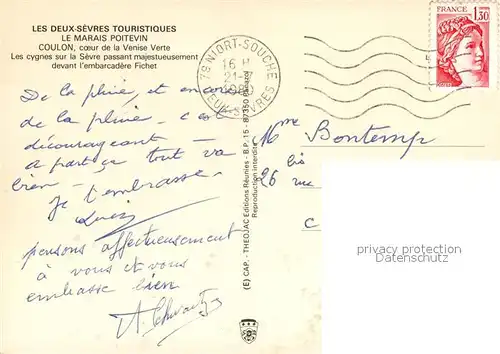 LES DEUX-SÈVRES TOURISTIQUES
LE MARAIS POITEVIN
COULON, cœur de la Venise Verte
Les cygnes sur la Sèvre passant majestueusement
devant l'embarcadère Fichet
De la pluie, et encore
de la pluie, c'est
décourageant
a part ça tout va
bien - je t'embrasse.
pensons affectueusement
à vous et vous
embrasse bien
79 NIORT-SOUCHE
16 H
21-7
1980
DEUX-SEVRES
(E) CAP. - THEOJAC Editions Réunies - B.P. 15 - 87350 Panazol
Reproduction interdite
FRANCE
1,30
Mme Bontemp
bis
26 rue
C
copyright protected
ansichtskarten-lexikon.de